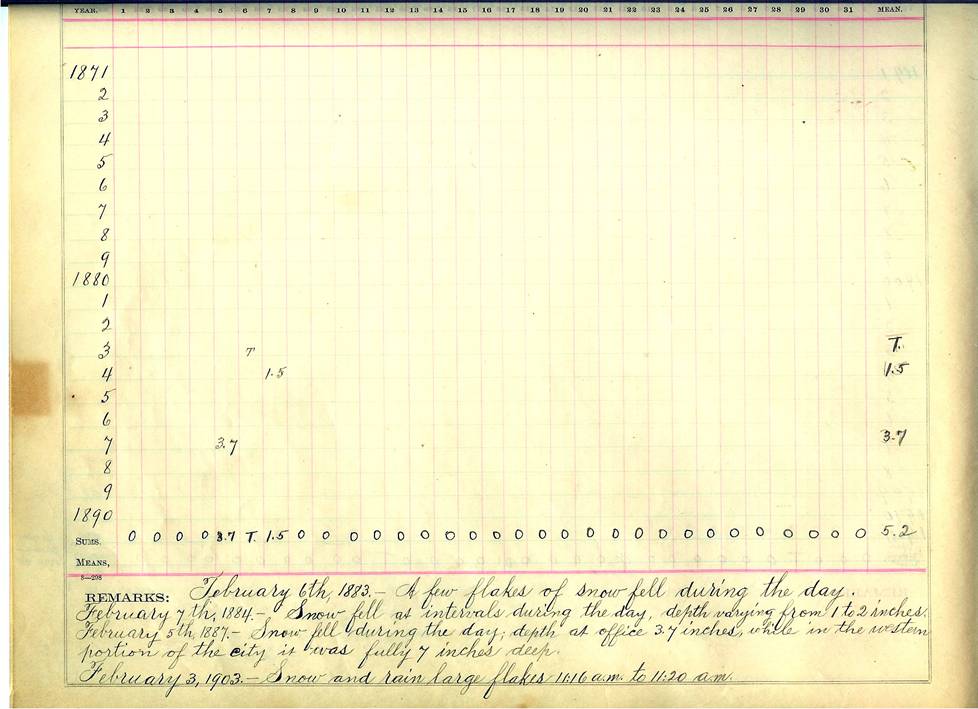 YEAR. 1 2 3 4 5 6 7 8 9 10 11 12 13 14 15 16 17 18 19 20 21 22 23 24 25 26 27 28 29 30 31 MEAN.
1871
2
3
4
5
6
7
8
9
1880
1
2
3 T T.
4 1.5 1.5
5
6
7 3.7 3.7
8
9
1890
SUMS. 0 0 0 0 3.7 T. 1.5 0 0 0 0 0 0 0 0 0 0 0 0 0 0 0 0 0 0 0 0 0 0 0 0 5.2
MEANS,
8—298
REMARKS: February 6th, 1883.- A few flakes of snow fell during the day.
February 7th, 1884.- Snow fell at intervals during the day, depth varying from 1 to 2 inches.
February 5th, 1887.- Snow fell during the day; depth at office 3.7 inches, while in the western
portion of the city it was fully 7 inches deep.
February 3, 1903.- Snow and rain large flakes 11:16 a.m. to 11:20 a.m.